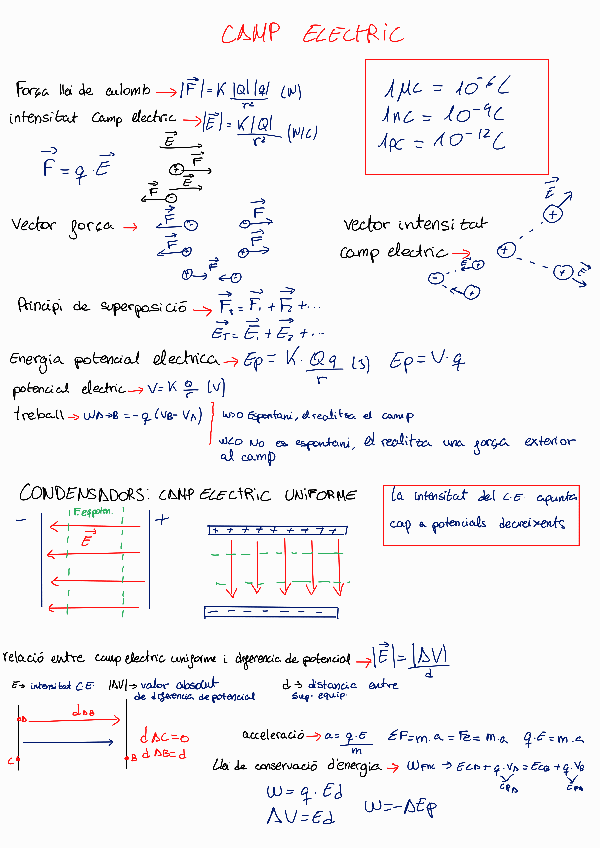 CAMP ELECTRIC
Força llei de culomb → |F⃗| = K |Q||q| / r² (N)
1μC = 10⁻⁶C
1nC = 10⁻⁹C
1pC = 10⁻¹²C
intensitat Camp electric → |E⃗| = K|Q| / r² (N/C)
F⃗ = q · E⃗
E⃗
F⃗
F⃗ E⃗
Vector força →
F⃗ F⃗
F⃗ F⃗
F⃗
vector intensitat
camp electric →
E⃗
E
E⃗
Principi de superposició → F⃗ₜ = F⃗₁ + F⃗₂ + ...
E⃗ₜ = E⃗₁ + E⃗₂ + ...
Energia potencial electrica → Ep = K · Q q / r (J) Ep = V · q
potencial electric → V = K Q / r (V)
treball → WA→B = -q (VB - VA)
W>0 Espontani, el realitza el camp
W<0 No es espontani, el realitza una força exterior
al camp
CONDENSADORS: CAMP ELECTRIC UNIFORME
La intensitat del C.E apunta
cap a potencials decreixents
- +
E⃗
+ + + + + + + + +
relació entre camp electric uniforme i diferencia de potencial → |E⃗| = |ΔV| / d
E → intensitat C.E. |ΔV| → valor absolut
de diferencia de potencial
d → distancia entre
sup. equip.
A d AB
C B
d AC = 0
d AB = d
acceleració → a = q·E / m EF = m·a = FE = m·a q·E = m·a
Llei de conservació d'energia → WFNC → ECA + q·VA = ECB + q·VB
EPA EPB
W = q · Ed
ΔV = Ed
W = -ΔEp